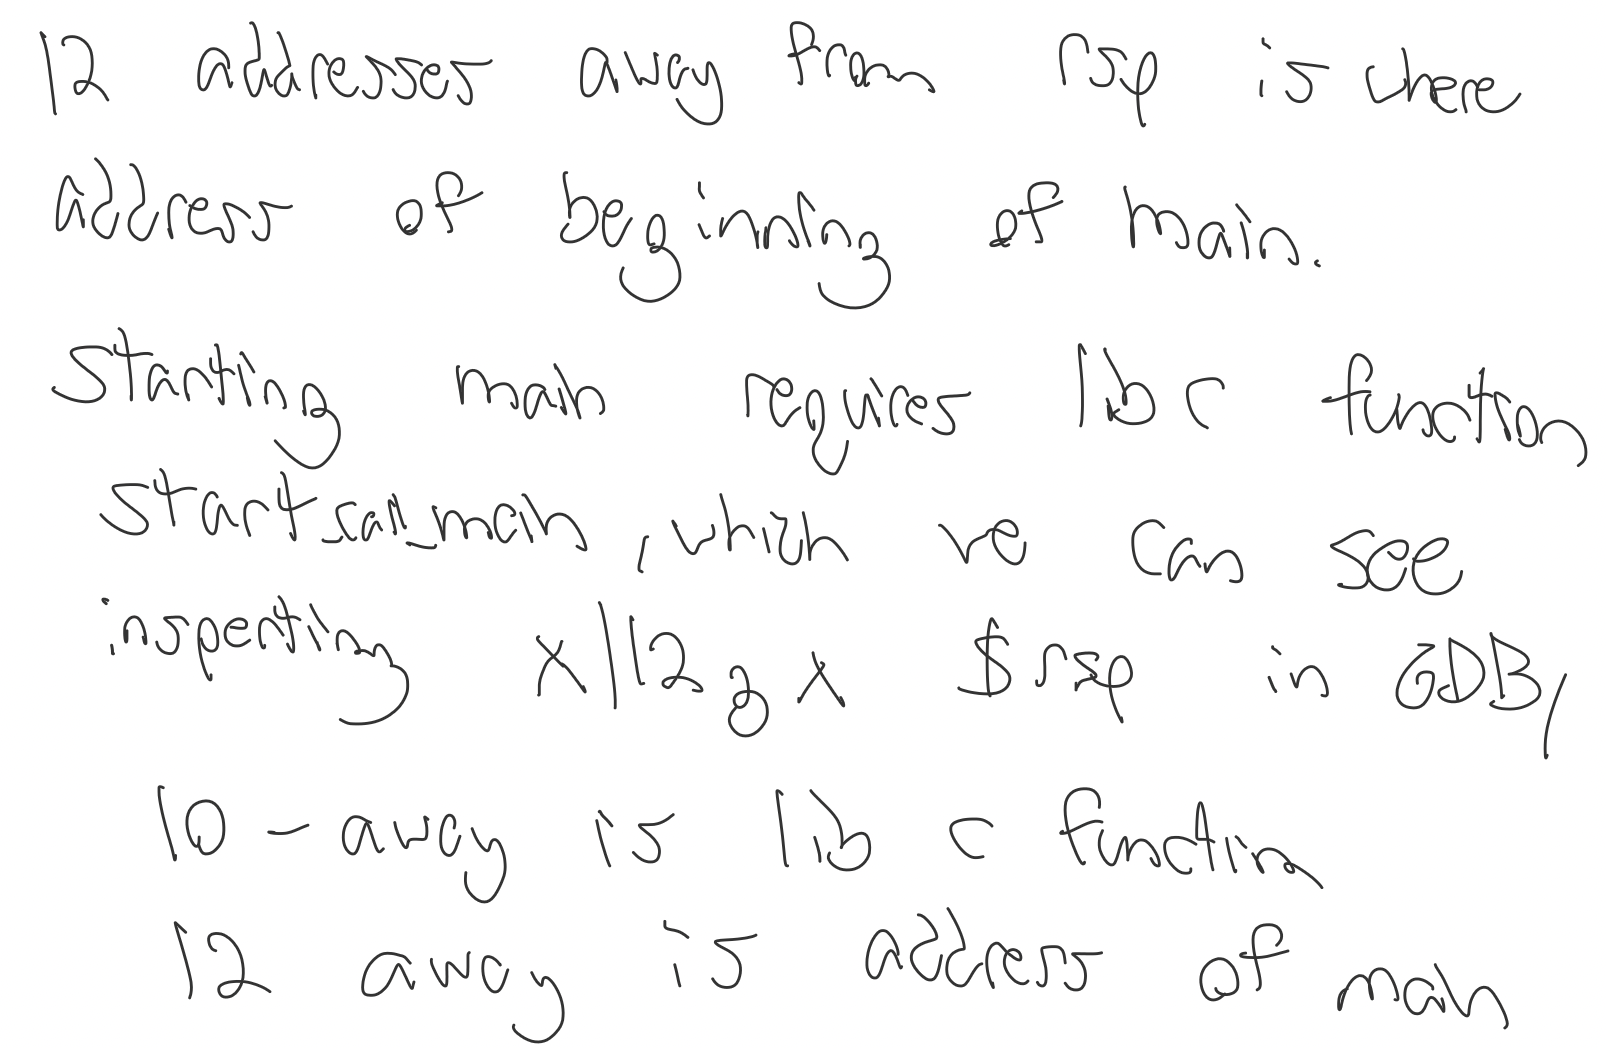 12 addresses away from rsp is where
address of beginning of main.
starting main requires libc function
start_call_main, which we can see
inspecting x/12gx $rsp in GDB,
10-away is lib c function
12 away is address of main